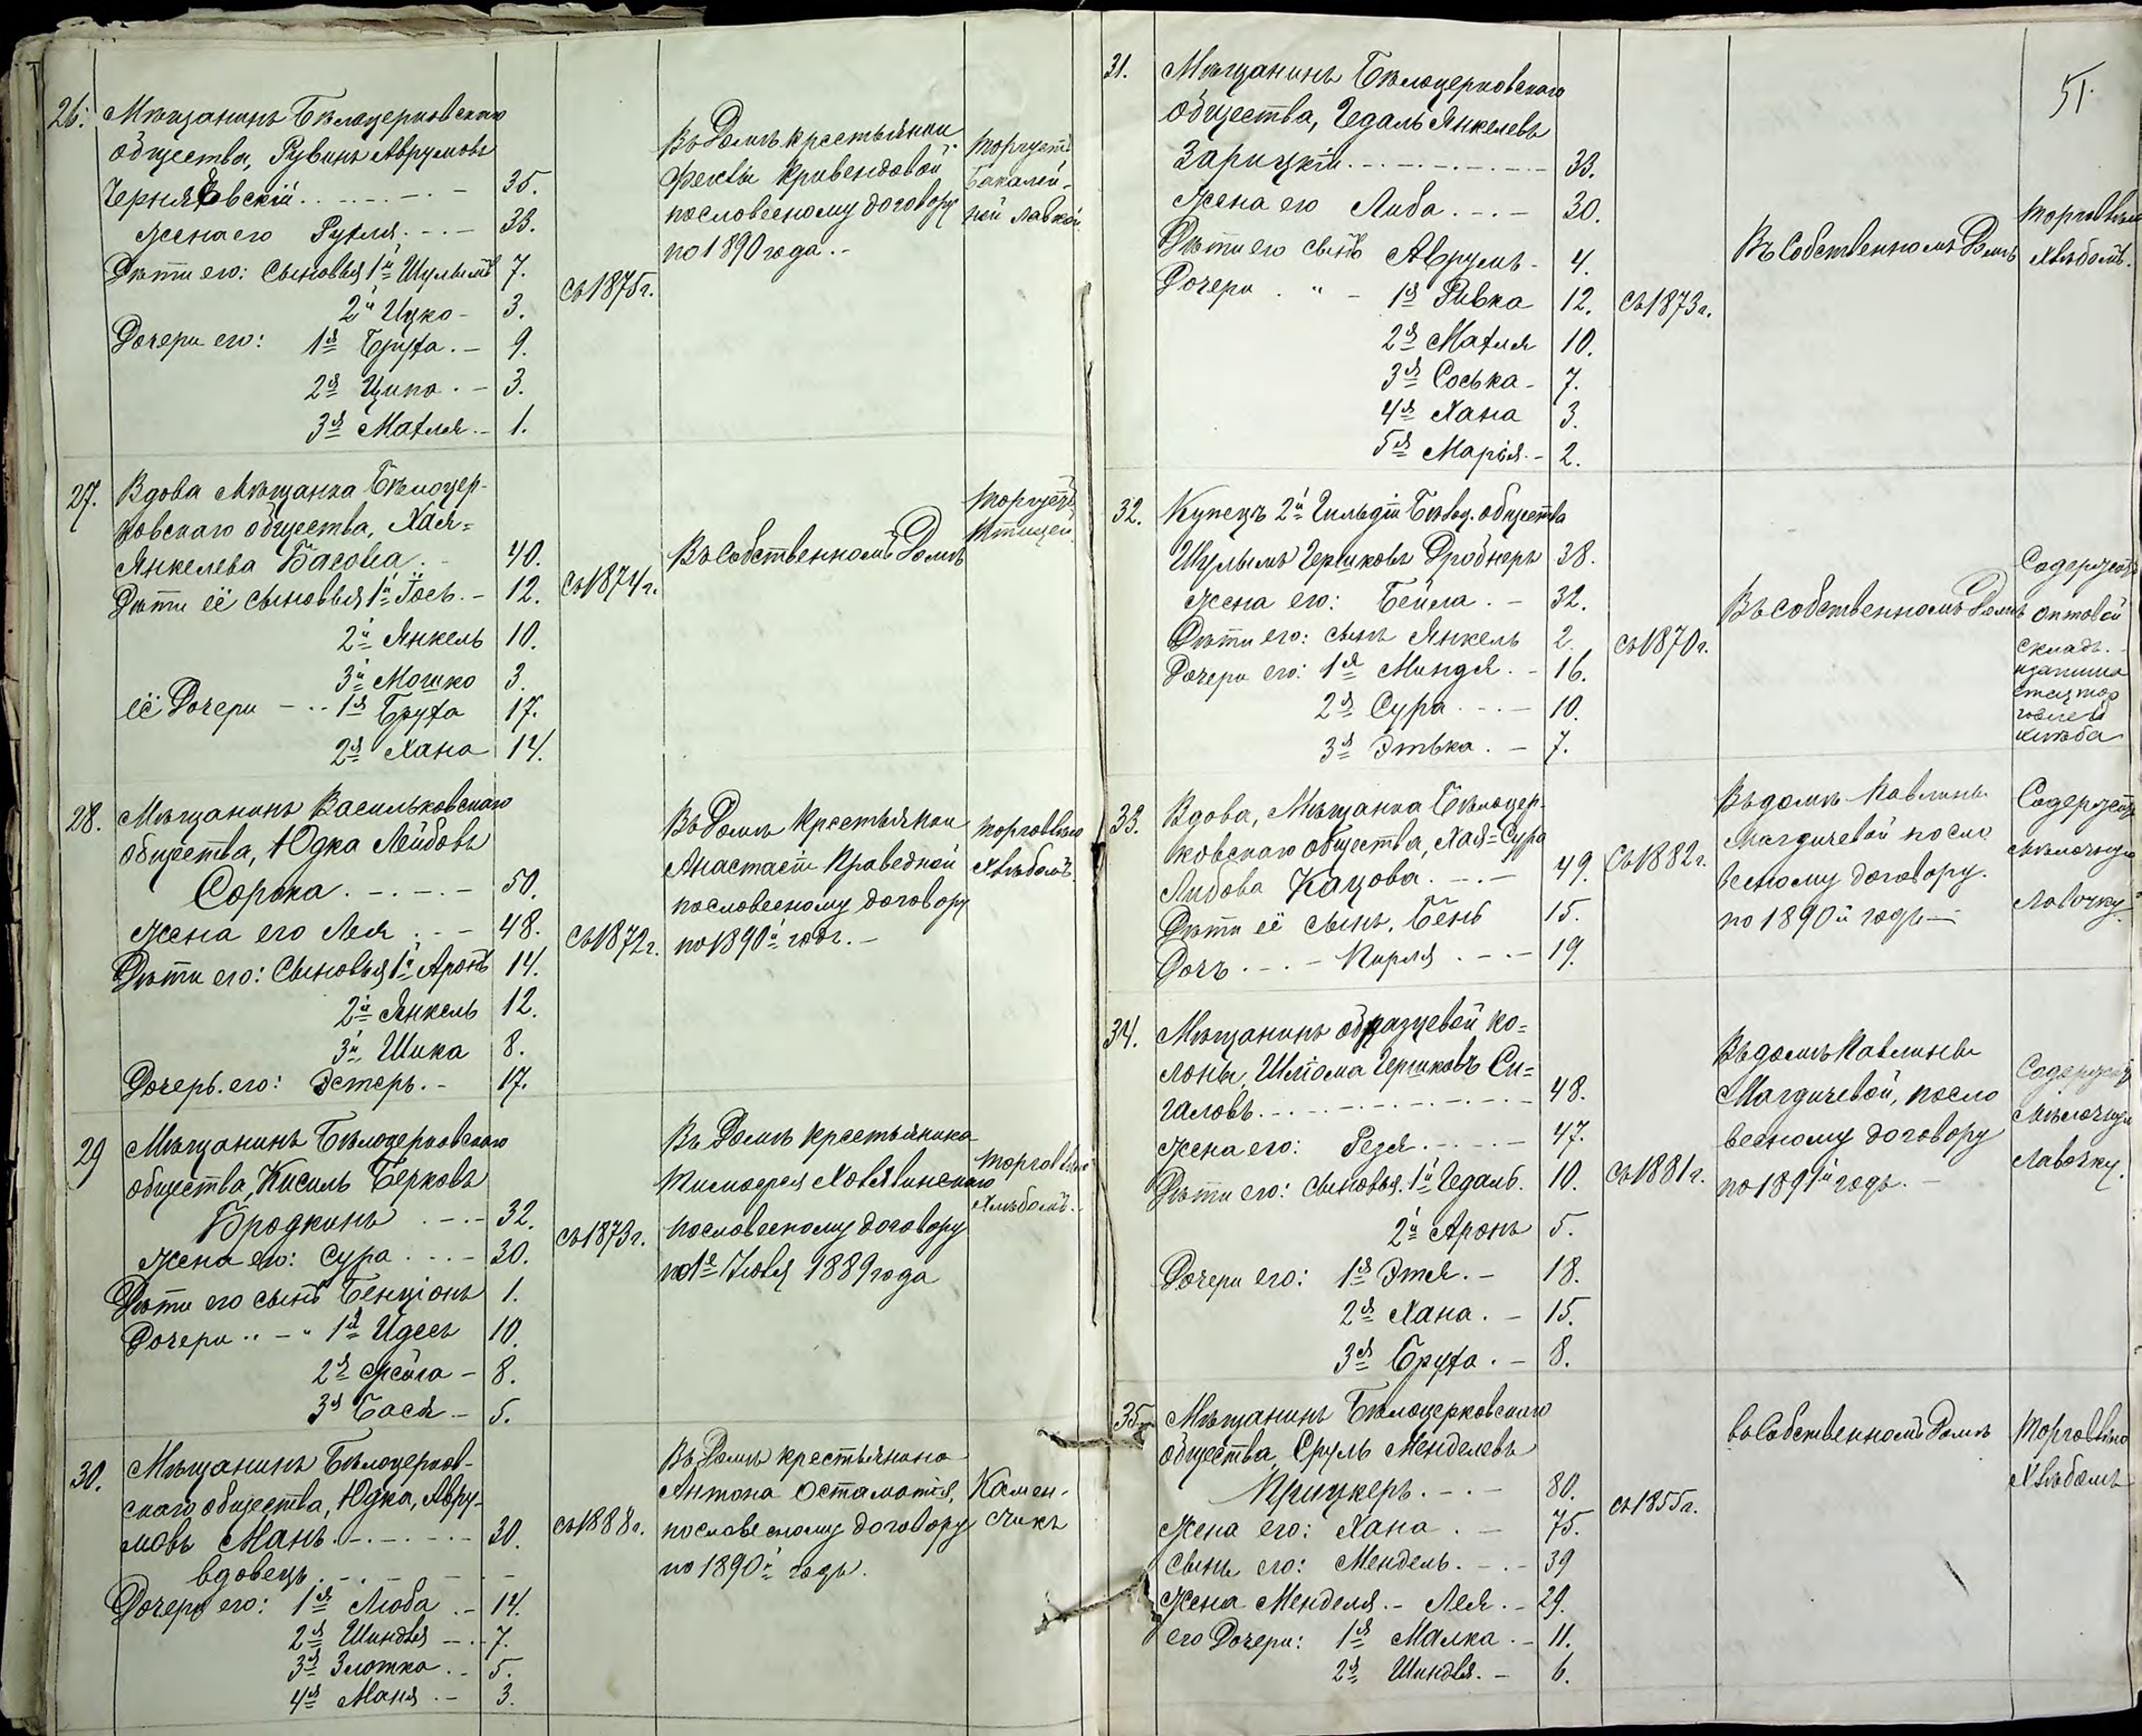 26. Мѣщанинъ Бѣлоцерковскаго
общества, Рувинъ Аврумовъ
Черняховскій 35.
жена его Рухля 33.
Дѣти его: Сыновья 1й Шулымъ 7.
2й Ицко 3.
Дочери его: 1я Бруха 9.
2я Ципа 3.
3я Махля 1.
съ 1875 г.
Въ Домѣ крестьянки
Феклы Кривендовой
пословесному договору
по 1890 года.
торгуетъ
бакалей-
ной лавкой
27. Вдова Мѣщанка Бѣлоцер-
ковскаго общества, Хая=
Янкелева Басова 40.
Дѣти её сыновья 1й Іось 12.
2й Янкель 10.
3й Мошко 3.
её Дочери 1я Бруха 17.
2я Хана 14.
съ 1874 г.
Въ Собственномъ Домѣ
торгуетъ
птицей
28. Мѣщанинъ Васильковскаго
общества, Юдка Лейбовъ
Сорока 50.
жена его Лея 48.
Дѣти его: Сыновья 1й Аронъ 14.
2й Янкель 12.
3й Шика 8.
Дочерь его: Эстеръ 17.
съ 1872 г.
Въ Домѣ Крестьянки
Анастасіи Праведной
пословесному договору
по 1890й годъ.
торговлею
хлѣбомъ.
29 Мѣщанинъ Бѣлоцерковскаго
общества, Кисиль Берковъ
Бродкинъ 32.
жена его: Сура 30.
Дѣти его сынъ Бенціонъ 1.
Дочери " 1я Идесъ 10.
2я 8.
3я Бася 5.
съ 1873 г.
Въ Домѣ крестьянина
Тимофея
пословесному договору
по 1е Іюля 1889 года
торговлею
хлѣбомъ.
30. Мѣщанинъ Бѣлоцерков-
скаго общества, Юдка, Авру-
мовъ Манъ 30.
вдовецъ
Дочери его: 1я Люба 14.
2я Шиндля 7.
3я Златка 5.
4я Маня 3.
съ 1888 г.
Въ Домѣ крестьянина
Антона
пословесному договору
по 1890й годъ.
Камен-
счикъ
51.
31. Мѣщанинъ Бѣлоцерковскаго
общества, Гедаль Янкелевъ
Зарицкій 33.
жена его Либа 30.
Дѣти его сынъ Аврумъ 4.
Дочери " 1я Ривка 12.
2я Махля 10.
3я Соська 7.
4я Хана 3.
5я Марія 2.
съ 1873 г.
Въ Собственномъ Домѣ
торговлею
хлѣбомъ.
32. Купецъ 2й Гильдіи Бѣлоц. общества
Шулымъ Гершковъ Дробнеръ 38.
жена его: Бейла 32.
Дѣти его: сынъ Янкель 2.
Дочери его: 1я Миндя 16.
2я Сура 10.
3я Этька 7.
съ 1870 г.
Въ собственномъ Домѣ
Содержитъ
оптовой
складъ
хлѣба
33. Вдова, Мѣщанка Бѣлоцер-
ковскаго общества, Хая=Сура
Либова Кацова 49.
Дѣти её сынъ, Бень 15.
Дочь Перля 19.
съ 1882 г.
Въ домѣ Павлины
Магдичевой посло
весному договору.
по 1890й годъ
Содержитъ
мѣлочную
лавочку.
34. Мѣщанинъ образцевой ко=
лоны, Шліома Гершковъ Си=
галовъ 48.
жена его: Рейзя 47.
Дѣти его: сыновья 1й Гедаль 10.
2й Аронъ 5.
Дочери его: 1я Этя 18.
2я Хана 15.
3я Бруха 8.
съ 1881 г.
Въ домѣ Павлины
Магдичевой, посло
весному договору
по 1891й годъ.
Содержитъ
мѣлочную
лавочку.
35. Мѣщанинъ Бѣлоцерковскаго
общества, Сруль Менделевъ
Прицкеръ 80.
жена его: Хана 75.
сынъ его: Мендель 39
жена Менделя Лея 29.
его Дочери: 1я Малка 11.
2я Шиндля 6.
съ 1855 г.
въ Собственномъ Домѣ
торговлею
хлѣбомъ